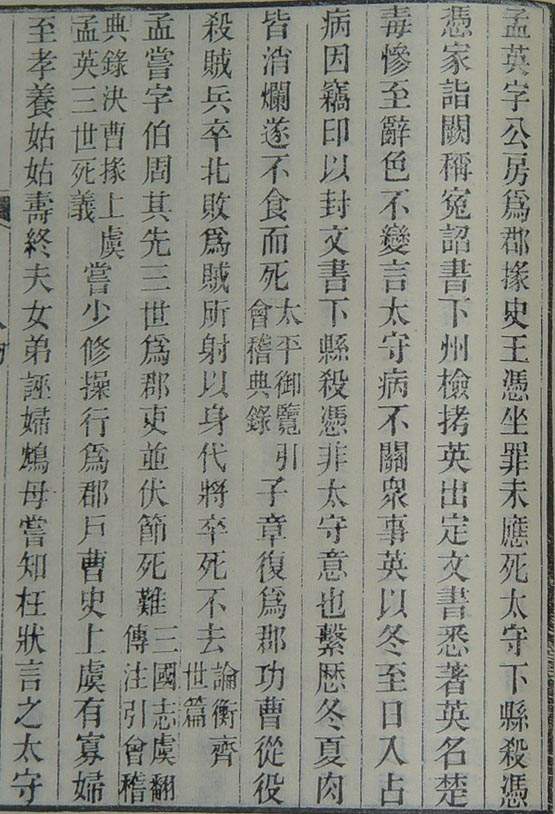 孟英字公房爲郡掾史王憑坐罪未應死太守下縣殺憑
憑家詣闕稱冤詔書下州檢拷英出定文書悉著英名楚
毒慘至辭色不變言太守病不關衆事英以冬至日入占
病因竊印以封文書下縣殺憑非太守意也繫歷冬夏肉
皆消爛遂不食而死太平御覽引會稽典錄子章復爲郡功曹從役
殺賊兵卒北敗爲賊所射以身代將卒死不去論衡齊世篇
孟嘗字伯周其先三世爲郡吏並伏節死難三國志虞翻傳注引會稽
典錄決曹掾上虞孟英三世死義嘗少修操行爲郡戶曹史上虞有寡婦
至孝養姑姑壽終夫女弟誣婦鴆母嘗知枉狀言之太守